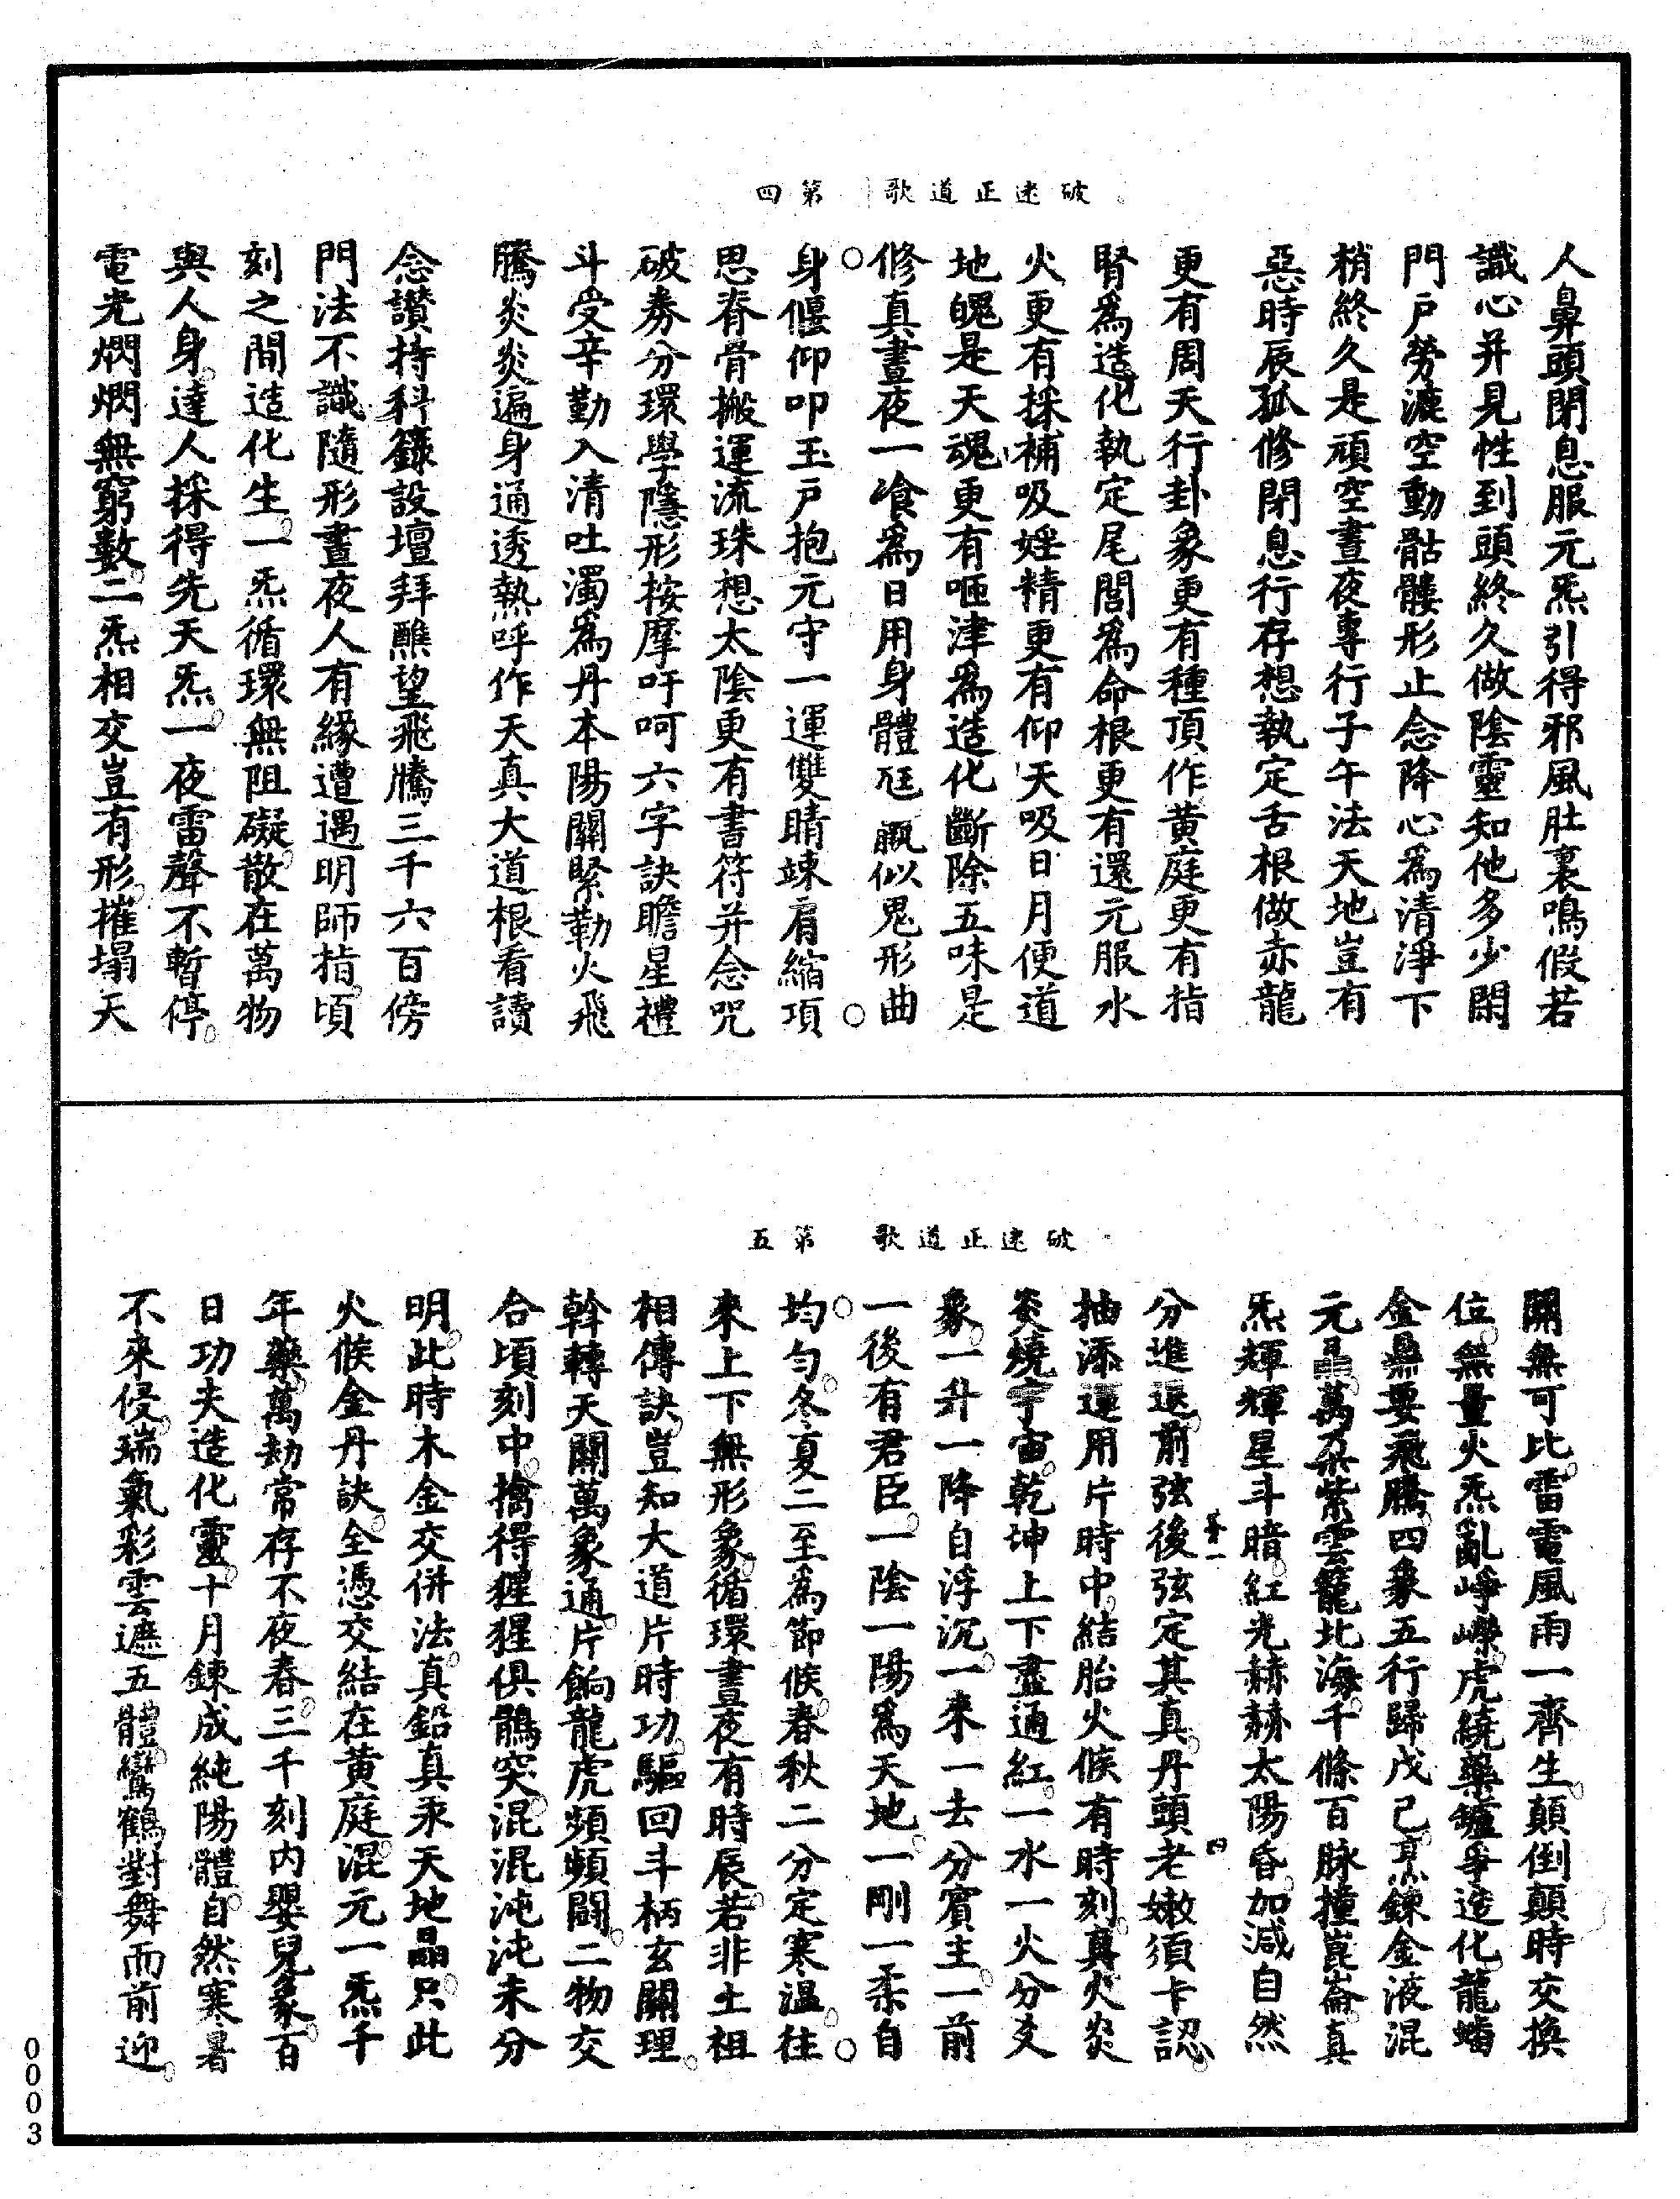 破迷正道歌　第四
人鼻頭閉息服元炁引得邪風肚裏鳴假若
識心并見性到頭終久做陰靈知他多少閑
門戶勞漉空動骷髏形止念降心為清淨下
梢終久是頑空晝夜專行子午法天地豈有
惡時辰孤修閉息行存想執定舌根做赤龍
更有周天行卦象更有種頂作黃庭更有指
腎為造化執定尾閭為命根更有還元服水
火更有採補吸婬精更有仰天吸日月便道
地魄是天魂更有咂津為造化斷除五味是
修真晝夜一飡為日用身體尫羸似鬼形曲
身偃仰叩玉戶抱元守一運雙睛竦肩縮項
思脊骨搬運流珠想太陰更有書符并念咒
破券分環學隱形按摩吁呵六字訣瞻星禮
斗受辛勤入清吐濁為丹本陽關緊勒火飛
騰炎炎遍身通透熱呼作天真大道根看讀
念讚持科籙設壇拜醮望飛騰三千六百傍
門法不識隨形晝夜人有緣遭遇明師指頃
刻之間造化生一炁循環無阻礙散在萬物
與人身達人採得先天炁一夜雷聲不暫停
電光燜燜無窮數二炁相交豈有形摧塌天
破迷正道歌　第五
關無可比雷電風雨一齊生顛倒顛時交換
位無量火炁亂崢嶸虎繞藥鑪爭造化龍蟠
金鼎要飛騰四象五行歸戊己烹鍊金液混
元晶萬朵紫雲籠北海千條百脉撞崑崙真
炁輝輝星斗暗紅光赫赫太陽昏加減自然
分進退前弦後弦定其真丹頭老嫩須卡認
抽添運用片時中結胎火候有時刻真火炎
炎燒宇宙乾坤上下盡通紅一水一火分爻
象一升一降自浮沉一來一去分賓主一前
一後有君臣一陰一陽為天地一剛一柔自
均勻冬夏二至為節候春秋二分定寒溫往
來上下無形象循環晝夜有時辰若非土祖
相傳訣豈知大道片時功驅回斗柄玄關理
斡轉天關萬象通片餉龍虎頻頻鬬二物交
合頃刻中擒得猩猩俱鶻突混混沌沌未分
明此時木金交併法真鉛真汞天地晶只此
火候金丹訣全憑交結在黃庭混元一炁千
年藥萬劫常存不夜春三千刻內嬰兒象百
日功夫造化靈十月鍊成純陽體自然寒暑
不來侵瑞氣彩雲遮五體鸞鶴對舞而前迎
0003